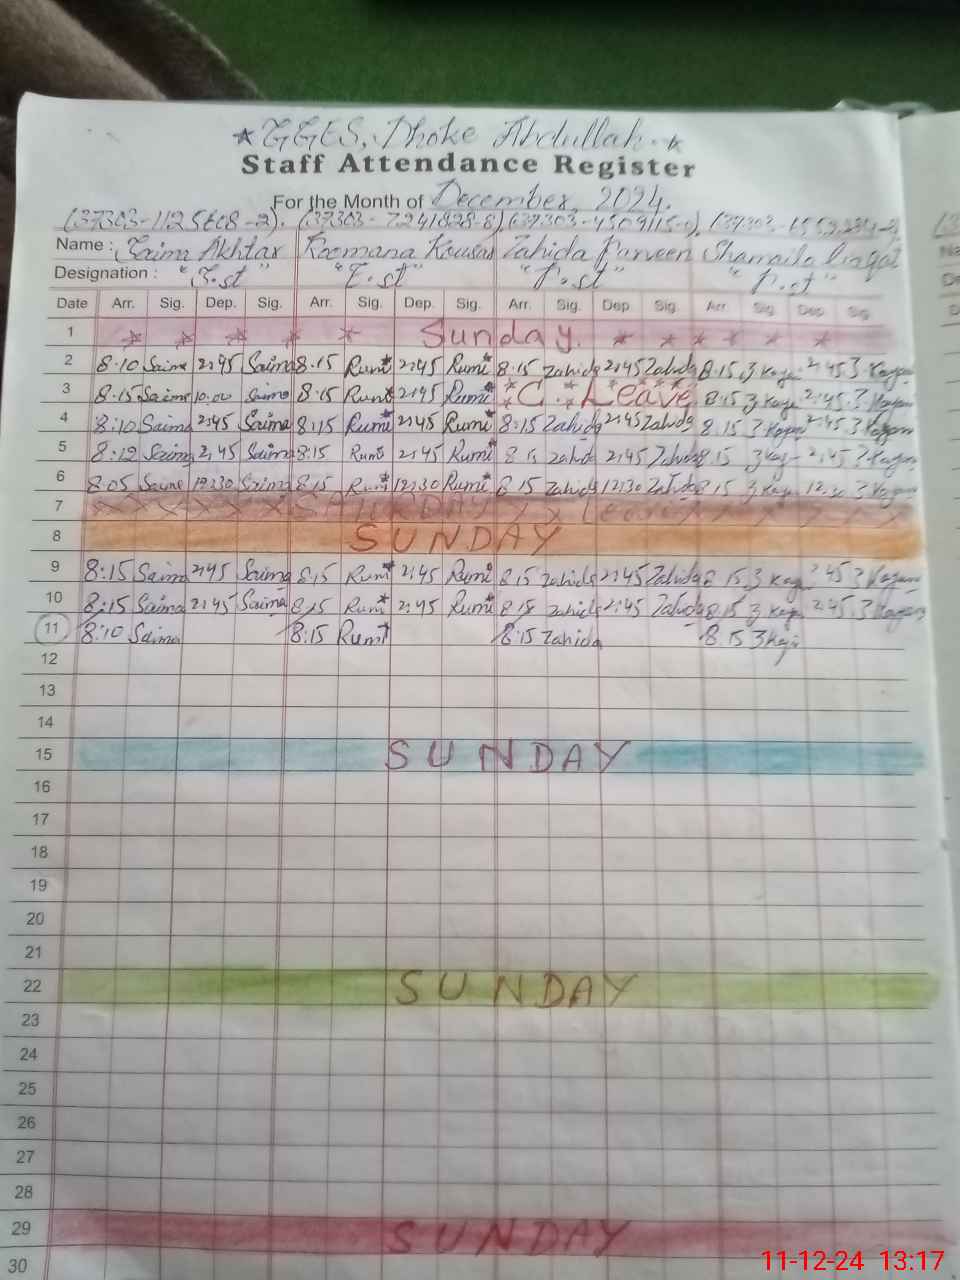 ★ GGES, Dhoke Abdullah. ★
Staff Attendance Register
For the Month of December, 2024.
Name : Saima Akhtar Roomana Kousar Zahida Parveen Shamaila Liaqat
Designation : "E.st" "P.st" "P.st"
Date Arr. Sig. Dep. Sig. Arr. Sig. Dep. Sig. Arr. Sig. Dep Sig. Arr Sig Dep Sig
1 Sunday.
2 8:10 Saima 2:45 Saima 8:15 Rumi 2:45 Rumi 8:15 Zahida 2:45 Zahida 8:15 2:45
3 8:15 Saima 10:00 Saima 8:15 Rumi 2:45 Rumi C. Leave 8:15 2:45
4 8:10 Saima 2:45 Saima 8:15 Rumi 2:45 Rumi 8:15 Zahida 2:45 Zahida 8:15 2:45
5 8:12 Saima 2:45 Saima 8:15 Rumi 2:45 Rumi 8:15 Zahida 2:45 Zahida 8:15 2:45
6 8:05 Saima 12:30 Saima 8:15 Rumi 12:30 Rumi 8:15 Zahida 12:30 Zahida 8:15 12:30
7 SATURDAY Leave
8 SUNDAY
9 8:15 Saima 2:45 Saima 8:15 Rumi 2:45 Rumi 8:15 Zahida 2:45 Zahida 8:15 2:45
10 8:15 Saima 2:45 Saima 8:15 Rumi 2:45 Rumi 8:15 Zahida 2:45 Zahida 8:15 2:45
11 8:10 Saima 8:15 Rumi 8:15 Zahida 8:15
12
13
14
15 SUNDAY
16
17
18
19
20
21
22 SUNDAY
23
24
25
26
27
28
29 SUNDAY
30
11-12-24 13:17